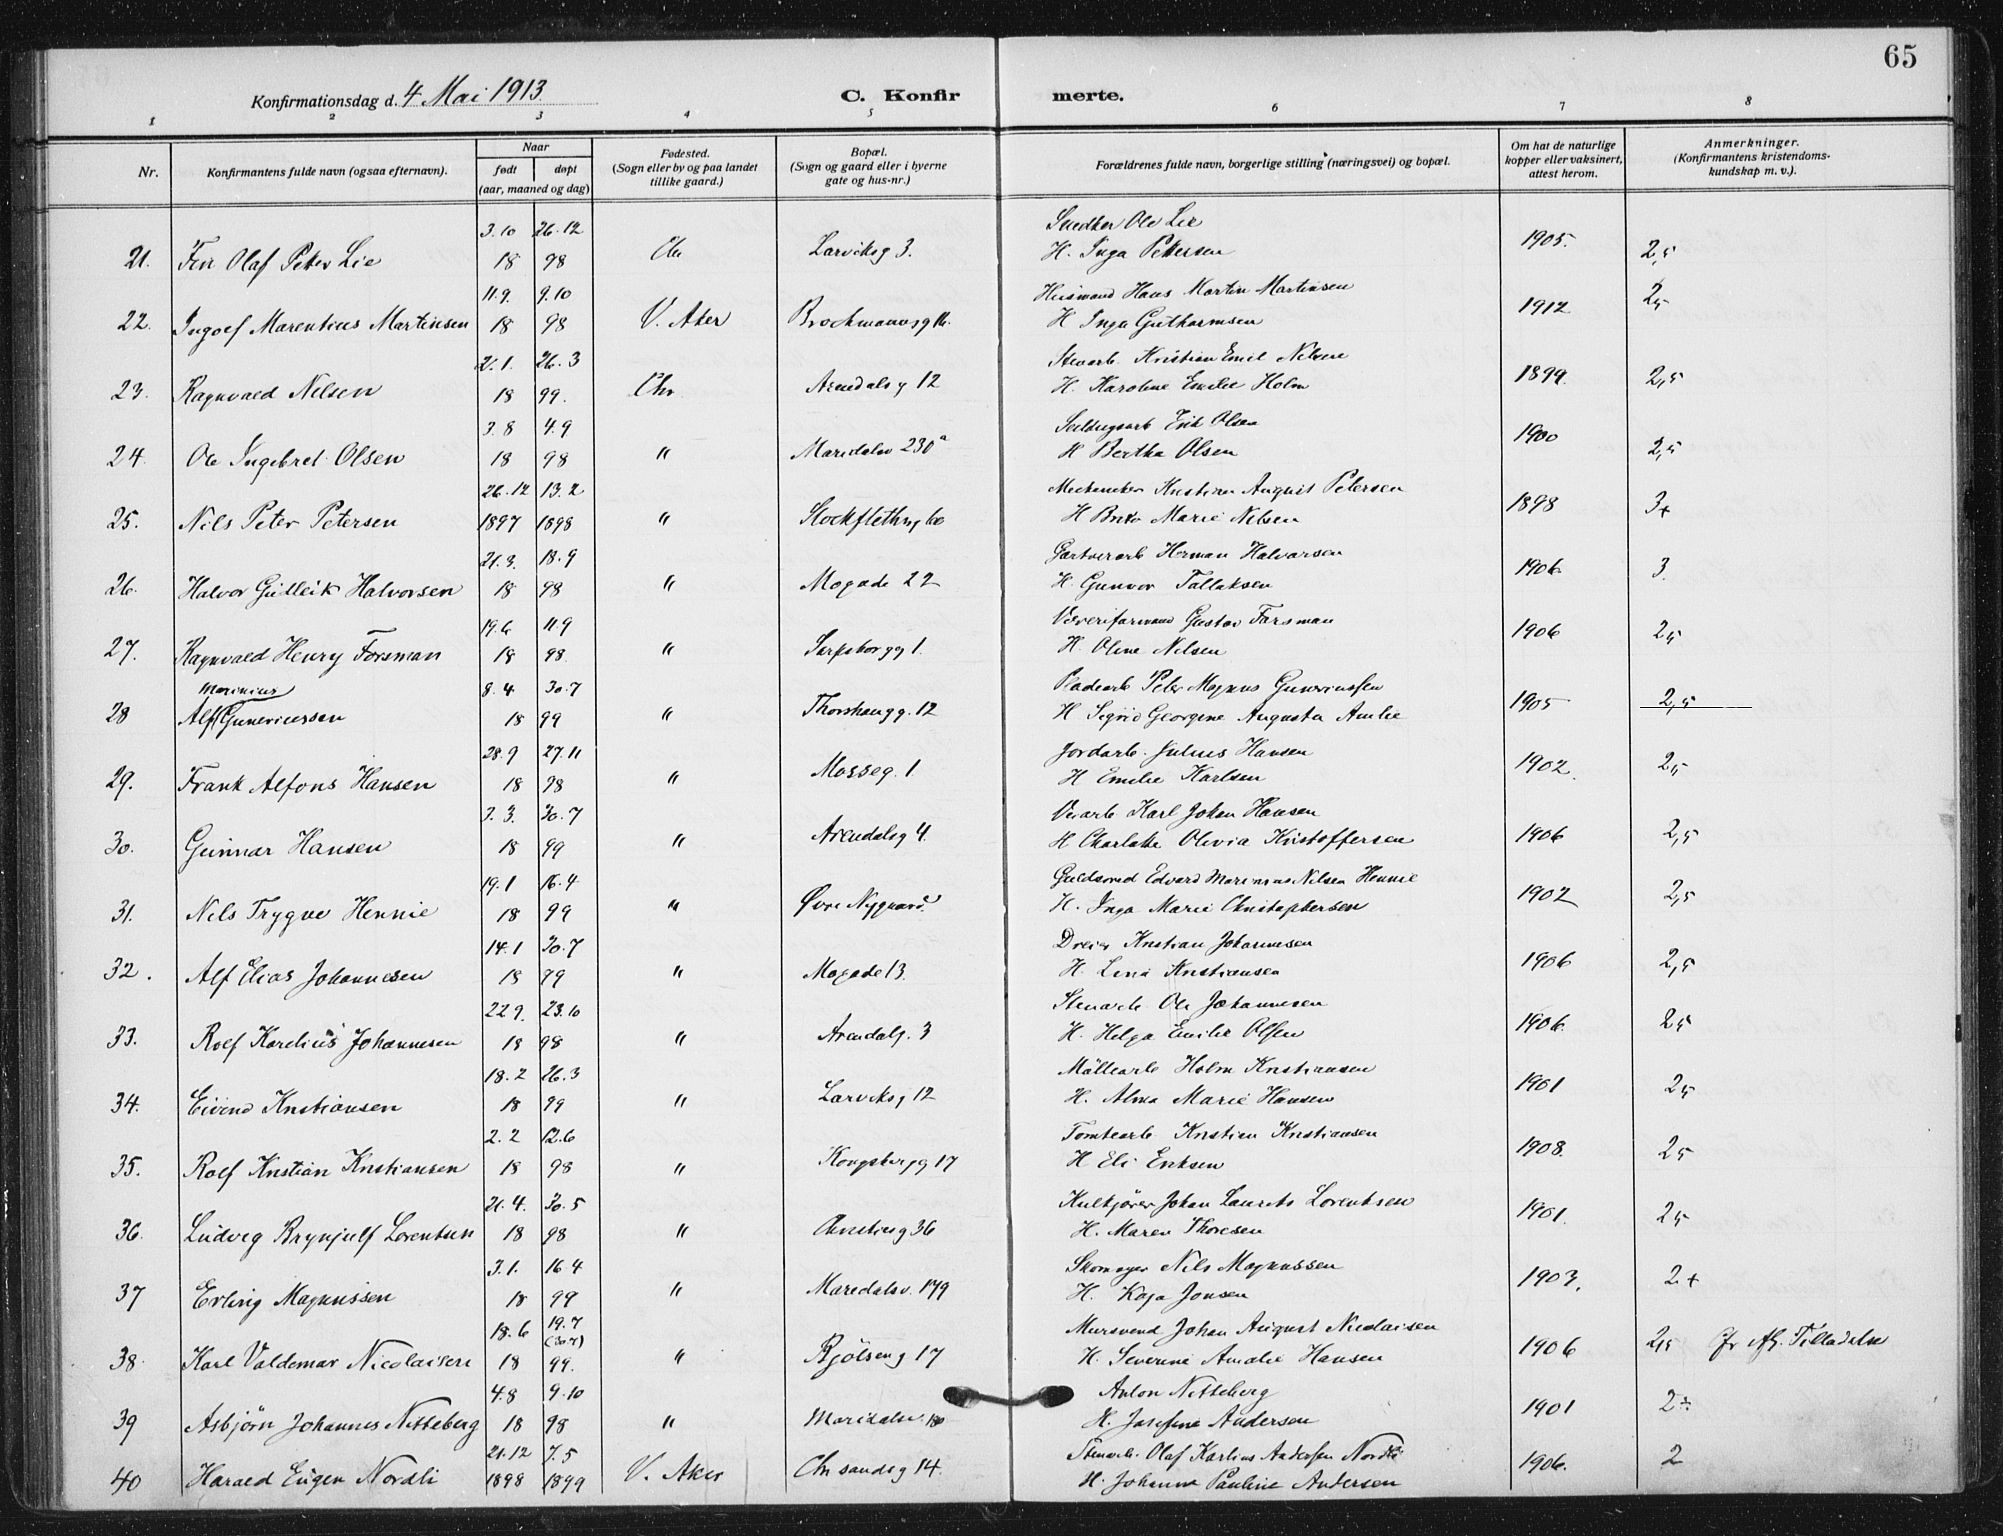 65
Konfirmationsdag d. 4 Mai 1913
C. Konfir merte.
1 2 3 4 5 6 7 8
Nr. Konfirmantens fulde navn (ogsaa efternavn). Naar født døpt (aar, maaned og dag) Fødested. (Sogn eller by og paa landet tillike gaard.) Bopæl. (Sogn og gaard eller i byerne gate og hus-nr.) Forældrenes fulde navn, borgerlige stilling (næringsvei) og bopæl. Om hat de naturlige kopper eller vaksinert, attest herom. Anmerkninger. (Konfirmantens kristendoms-kundskap m. v.).
3.10 26.12 Snedker Ole Lie
21. Finn Olaf Peter Lie 18 98 Chr Larviksg 3. H. Inga Pettersen 1905. 2,5
11.9. 9.10 Husmand Hans Martin Martinsen
22. Ingolf Marentius Martinsen 18 98 V. Aker Brochmannsg 16. H Inga Guthormsen 1912 25
21. 26.3 Stenarb Kristian Emil Nilsen
23. Ragnvald Nelsen 18 99. Chr Arendalsg 12 H. Karoline Emilie Holm 1899. 2,5
3.8 4.9 Erik Olsen
24. Ole Ingebret Olsen 18 98 " Maridalsv 230a H Bertha Olsen 1900 2,5
26.12 13.2 Mekaniker Kristian August Petersen
25. Nils Peter Petersen 1897 1898 " Stockflethsg 60 H Marie Nilsen 1898 3+
21.3. 18.9 Gartnerarb Herman Halvorsen
26. Halvor Gulleik Halvorsen 18 98 " Mogade 22 H. Gunvor Tallaksen 1906. 3.
19.6 11.9 Væveriformand Gustav Forsman
27. Ragnvald Henry Forsman 18 98 " Sarpsborgg 1. H. Oline Nilsen 1906 25
Marinius 8.4 30.7 Pladearb Peter Magnus Guneriussen
28 Alf Guneriussen 18 99 " Thorshaugg. 12 H Sigrid Georgine Augusta Amlie 1905 2,5
28.9 27.11 Jordarb. Julius Hansen
29. Frank Alfons Hansen 18 98 " Mosseg. 1. H Emilie Karlsen 1902. 25
3.3. 30.7 Veiarb Karl Johan Hansen
30. Gunnar Hansen 18 99 " Arendalsg 4. H Charlotte Olivia Kristoffersen 1906 2,5
19.1 16.4 Guldsmed Edvard Marinius Nilsen Hennie
31. Nils Trygve Hennie 18 99 " Øvre Nygaard. H. Inga Marie Christophersen 1902 2,5
14.1 30.7 Dreier Kristian Johannesen
32. Alf Elias Johannesen 18 99 " Mogade 13. H. Lina Kristiansen 1906 2,5
22.9. 23.10 Stenarb Ole Johannesen
33. Rolf Karelius Johannesen 18 98 " Arendalsg. 3 H. Helga Emilie Olsen 1906. 25
18.2 26.3 Møllearb Holm Kristiansen
34. Eivind Kristiansen 18 99 " Larviksg 12 H. Alma Marie Hansen 1901 25
2.2 12.6 Tomtearb Kristian Kristiansen
35. Rolf Kristian Kristiansen 18 98 " Kongsbergg 17 H Eli Eriksen 1908. 25
21.4. 30.5 Kulkjører Johan Laurits Lorentsen
36. Ludvig Brynjulf Lorentsen 18 98 " Christiesg 36 H. Maren Thoresen 1901. 25
3.1. 16.4 Skomager Nils Magnussen
37 Erling Magnussen 18 99 " Maridalsv. 179 H. Kaja Jonsen 1903. 2+
18.6 19.7 (30.7) Mursvend Johan August Nicolaisen
38. Karl Valdemar Nicolaisen 18 99. " Bjølseng 17 H. Severine Amalie Hansen 1906 2,5 Tilladelse
4.8 9.10 Anton Nitteberg
39 Asbjørn Johannes Nitteberg 18 98 " Maridalsv. H. Josefine Andersen 1901 2÷
21.12 7.5 Stenarb. Olaf Karlius Andersen Nordli
40 Harald Eugen Nordli 1898 1899 V. Aker Chr sandsg 14. H. Johanne Pauline Andersen 1906. 2